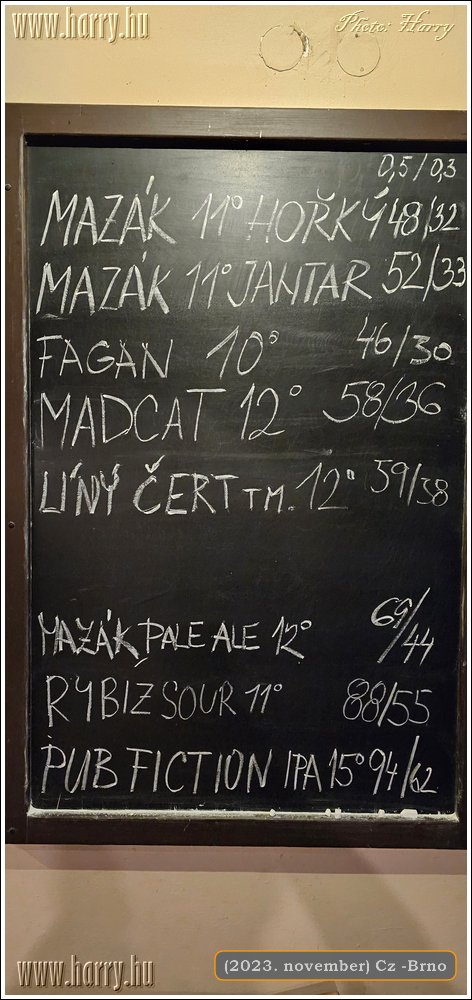 www.harry.hu
Photo: Harry
0,5/0,3
MAZÁK 11° HOŘKÝ 48/32
MAZÁK 11° JANTAR 52/33
FAGAN 10° 46/30
MADCAT 12° 58/36
LÍNÝ ČERT TM. 12° 59/38
MAZÁK PALE ALE 12° 69/44
RYBÍZ SOUR 11° 88/55
PUB FICTION IPA 15° 94/62
www.harry.hu
(2023. november) Cz -Brno